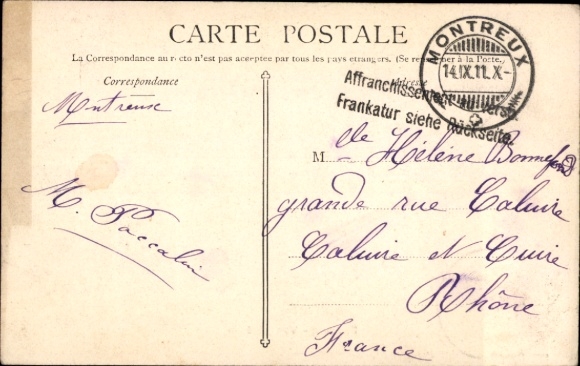 CARTE POSTALE
La Correspondance au recto n'est pas acceptée par tous les pays étrangers. (Se renseigner à la Poste.)
Correspondance
Adresse
MONTREUX
14.IX.11.X-
Affranchissement au verso.
Frankatur siehe Rückseite.
Montreux
M. Paccalin
Mlle Hélène Bonnefond
grande rue Caluire
Caluire et Cuire
Rhône
France